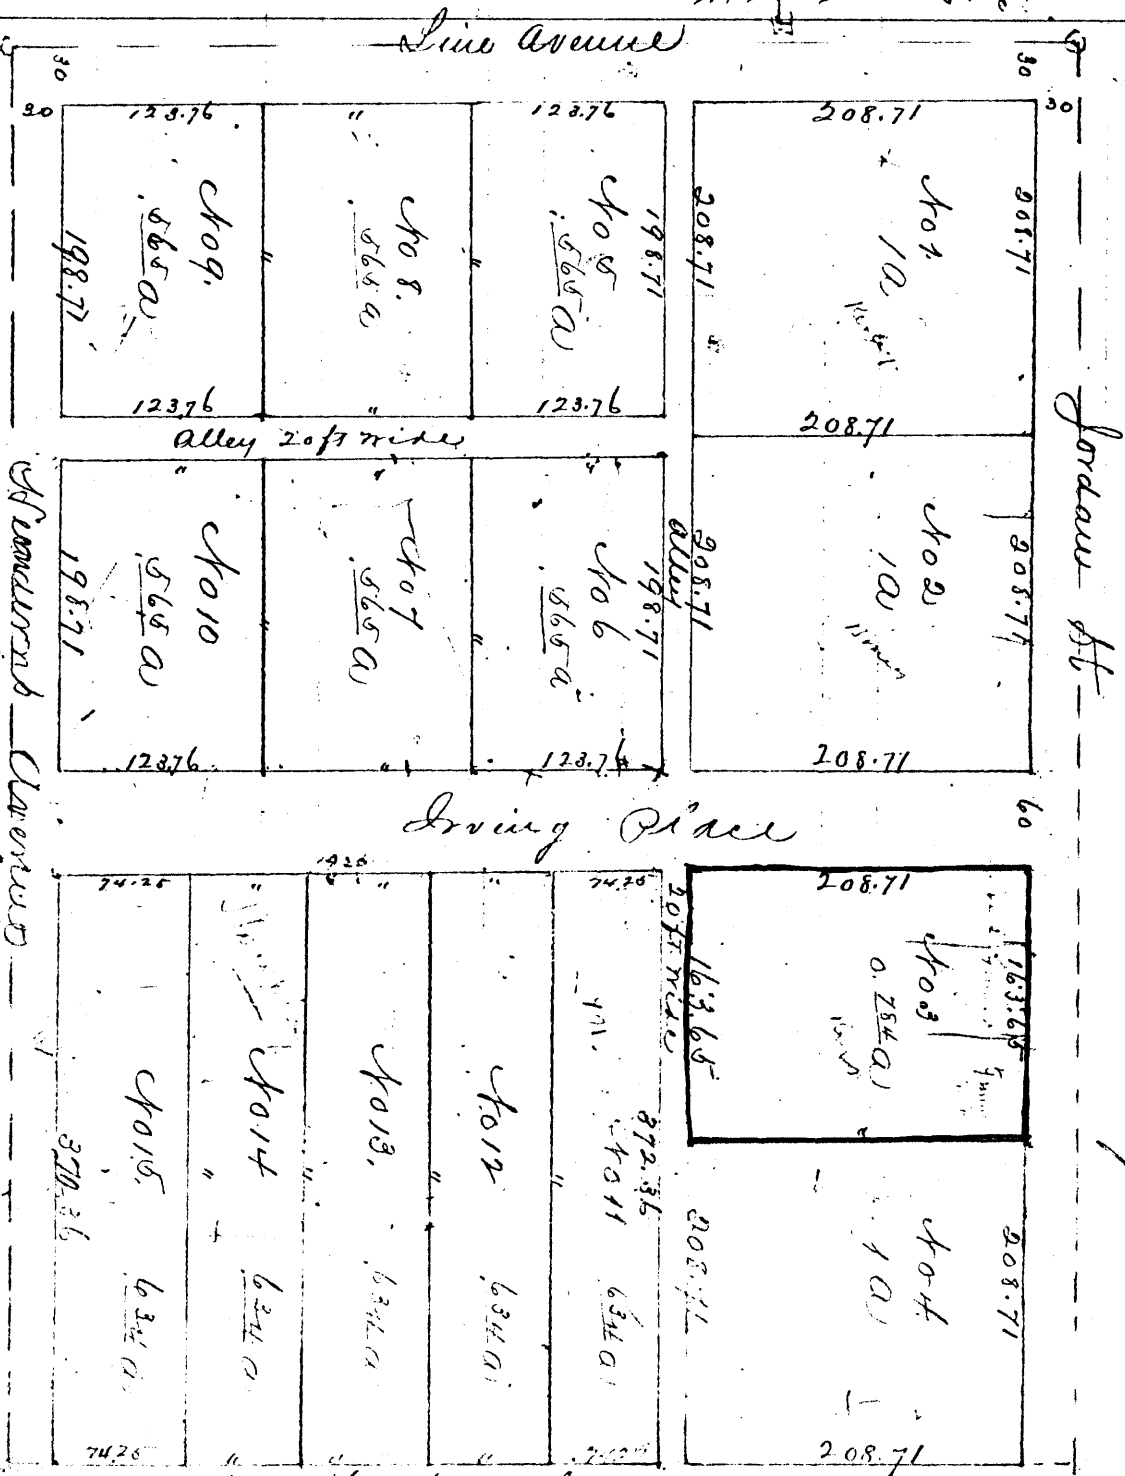 Line Avenue
30
30
30
30
123.76
"
123.76
208.71
No 9.
.565 a
198.71
No 8.
.565 a
No 5
.565 a
198.71
208.71
No 1.
1 a
208.71
"
"
123.76
"
123.76
208.71
Alley 20 ft wide
Jordan St
"
"
"
No 10
.565 a
198.71
No 7
.565 a
No 6
.565 a
198.71
Alley
208.71
No 2
1 a
208.71
"
"
123.76
"
123.76
208.71
Avenue
Irving Place
60
74.25
"
"
"
74.25
20 ft wide
208.71
163.65
No 3
0.784 a
163.65
"
No 15.
.634 a
No 14
.634 a
No 13.
.634 a
No 12
.634 a
No 11
.634 a
372.36
208.71
No 4.
1 a
208.71
"
"
"
"
74.25
"
"
"
208.71